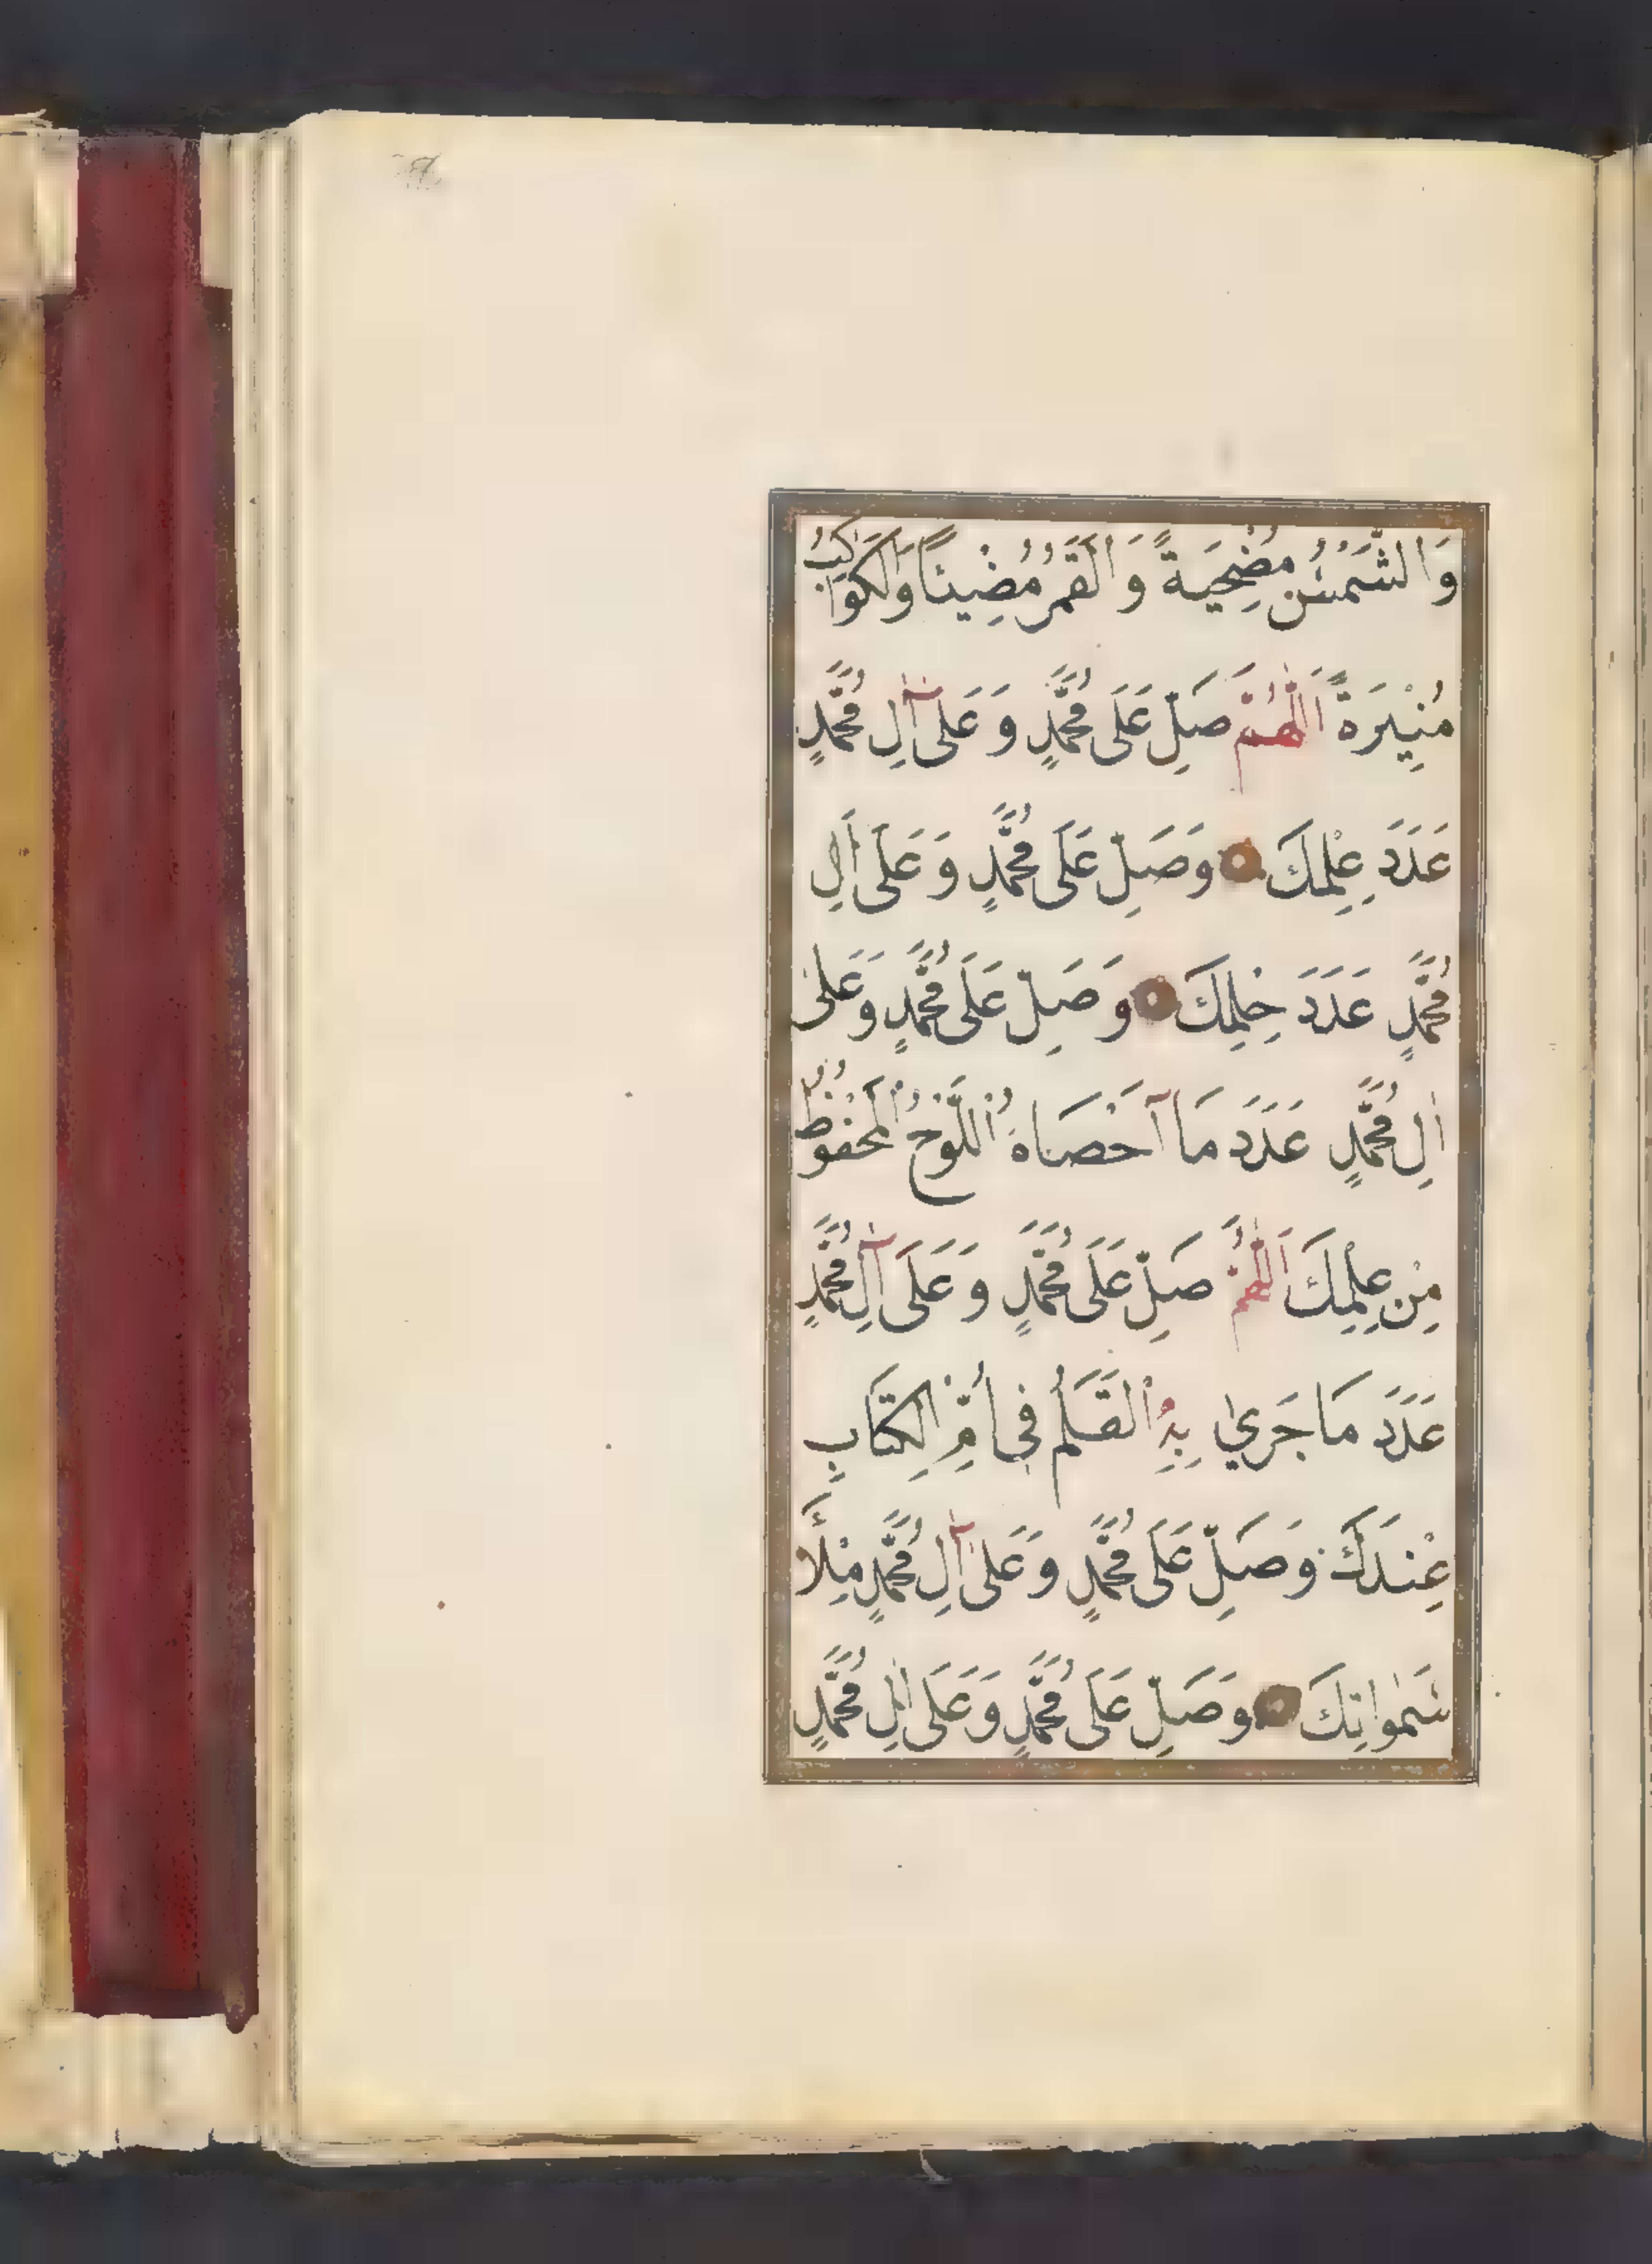 وَالشَّمْسُ مُضْحِيَةً وَالْقَمَرُ مُضِيئًا وَالْكَوَاكِبُ
مُنِيْرَةً اَللّٰهُمَّ صَلِّ عَلَى مُحَمَّدٍ وَ عَلٰى آلِ مُحَمَّدٍ
عَدَدَ عِلْمِكَ وَصَلِّ عَلَى مُحَمَّدٍ وَ عَلَى اٰلِ
مُحَمَّدٍ عَدَدَ حِلْمِكَ وَ صَلِّ عَلَى مُحَمَّدٍ وَعَلٰى
اٰلِ مُحَمَّدٍ عَدَدَ مَا آحْصَاهُ اللَّوْحُ الْمَحْفُوْظُ
مِنْ عِلْمِكَ اَللّٰهُمَّ صَلِّ عَلَى مُحَمَّدٍ وَ عَلَى آلِ مُحَمَّدٍ
عَدَدَ مَا جَرٰي بِهِ الْقَلَمُ فِى أُمِّ الْكِتَابِ
عِنْدَكَ وَصَلِّ عَلَى مُحَمَّدٍ وَ عَلٰى آلِ مُحَمَّدٍ مِلْأَ
سَمٰوَاتِكَ وَصَلِّ عَلَى مُحَمَّدٍ وَعَلَى اٰلِ مُحَمَّدٍ